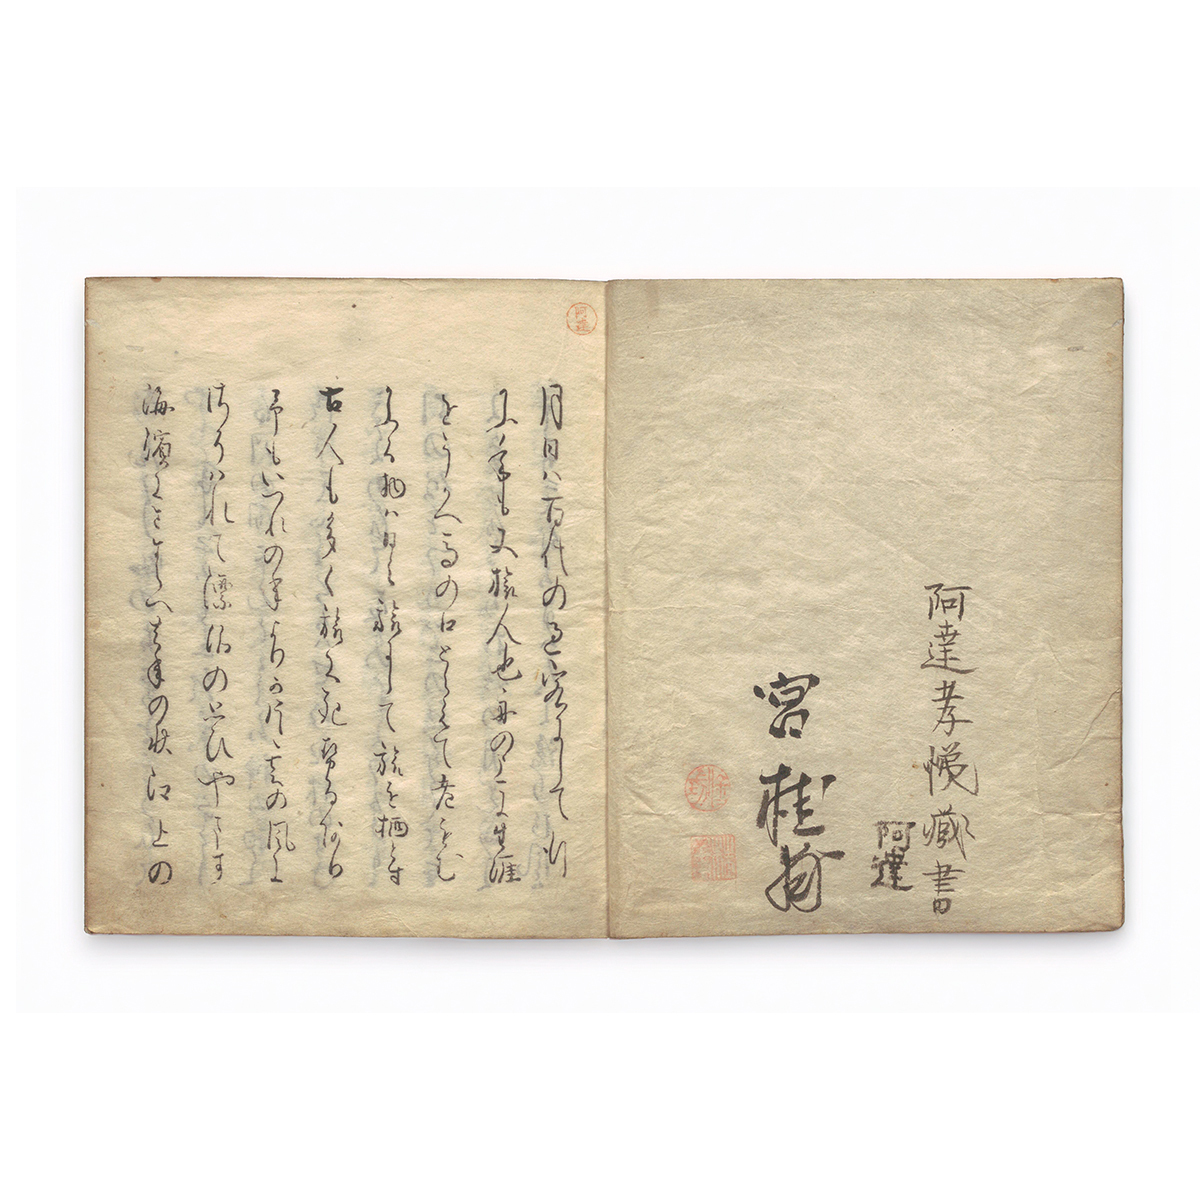 阿達孝悦藏書
阿達
宮桂
月日ハ百代の過客にして行
かふ年も又旅人也舟の上に生涯
をうかへ馬の口とらえて老をむ
かふる物ハ日々旅にして旅を栖とす
古人も多く旅に死せるあり
予もいつれの年よりか片雲の風に
さそハれて漂泊の思ひやます
海濱にさすらへ去年の秋江上の